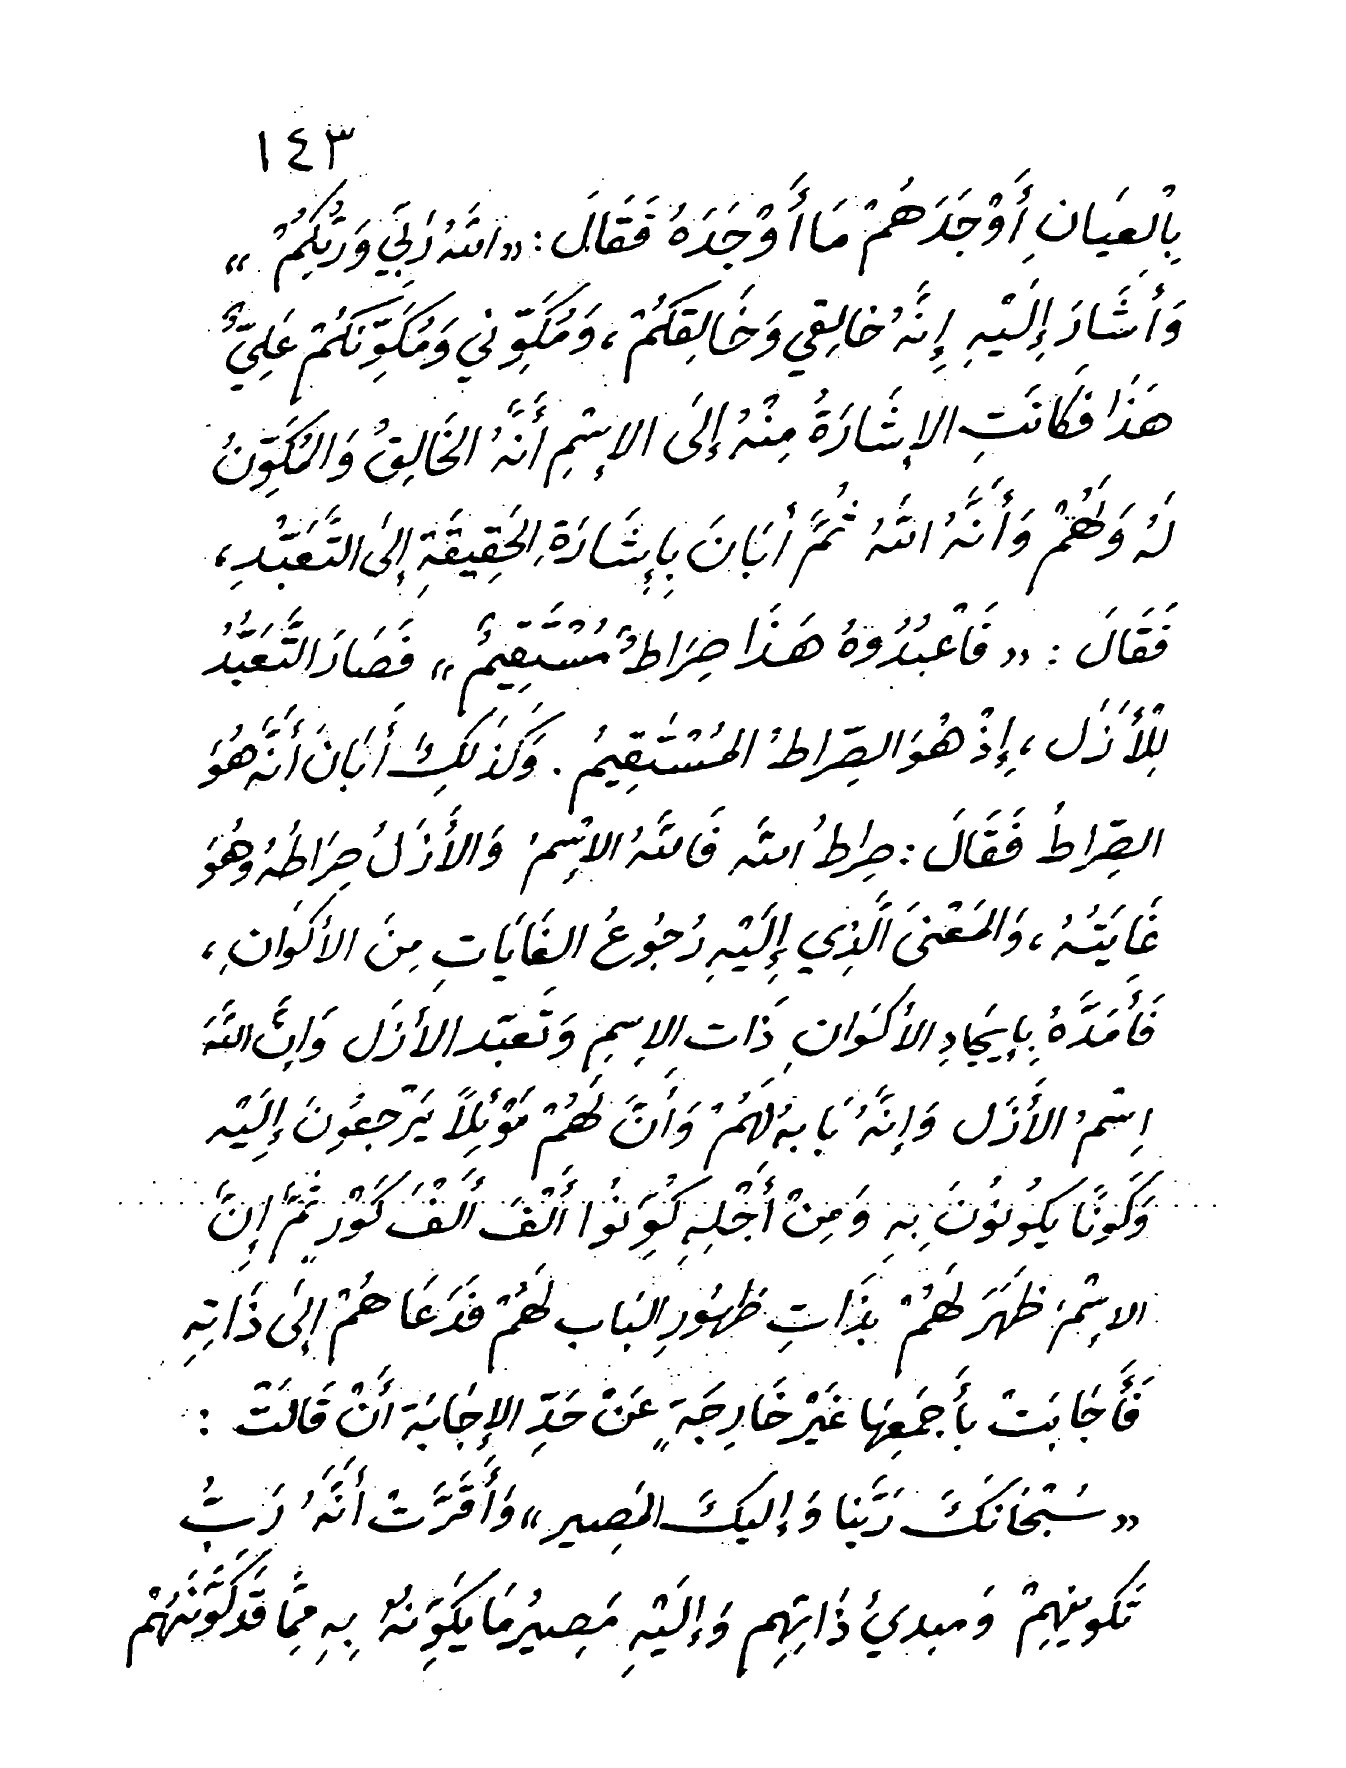 ١٤٣
بِالْعِيَانِ أَوْجَدَهُمْ مَا أَوْجَدَهُ فَقَالَ : «اللَّهُ رَبِّي وَرَبُّكُمْ »
وَأَشَارَ إِلَيْهِ إِنَّهُ خالِقِي وَخَالِقِكُمْ ، وَمُكَوِّنِي وَمُكَوِّنَكُمْ عَلِيٌّ
هَذَا فَكَانَتِ الإِشَارَةُ مِنْهُ إِلَى الإِسْمِ أَنَّهُ الخَالِقُ وَالمُكَوِّنُ
لَهُ وَلَهُمْ وَأَنَّهُ اللَّهُ ثُمَّ أَبَانَ بِإِشَارَةِ الحَقِيقَةِ إِلَى التَّعَبُّدِ ،
فَقَالَ : « فَاعْبُدُوهُ هَذَا صِرَاطٌ مُسْتَقِيمٌ » فَصَارَ التَّعَبُّدُ
لِلْأَزَلِ ، إِذْ هُوَ الصِّرَاطُ المُسْتَقِيمُ . وَكَذَلِكَ أَبَانَ أَنَّهُ هُوَ
الصِّرَاطُ فَقَالَ : صِرَاطُ اللَّه فَاللَّهُ الإِسْمُ وَالأَزَلُ صِرَاطُهُ وَهُوَ
غَايَتُهُ ، وَالمَعْنَى الَّذِي إِلَيْهِ رُجُوعُ الغَايَاتِ مِنَ الأَكْوَانِ ،
فَأَمَدَّهُ بِإِيجَادِ الأَكْوَانِ ذَات الإِسمِ وَتَعَبّد الأَزَل وَإِنَّ اللَّهَ
اِسْمُ الأَزَل وَإِنَّهُ بَابهُ لَهُمْ وَأَنَّ لَهُمْ مَوْئِلاً يَرْجِعُونَ إِلَيْه
وَكَوْنًا يَكُونُونَ بِهِ وَمِنْ أَجْلِهِ كُوِّنُوا أَلْفَ أَلْفَ كَوْرٍ ثُمَّ إِنَّ
الإِسْمَ ظَهَرَ لَهُمْ بِذَاتِ ظهُورِ البَاب لَهُمْ فَدَعَاهُمْ إِلَى ذَاتِهِ
فَأَجَابَتْ بأَجمَعِهَا غَيْرَ خَارِجَةٍ عَنْ حَدِّ الإِجَابَة أَنْ قَالَتْ :
« سُبْحَانَكَ رَبَّنَا وَإِليكَ المَصِير » وَأَقَرَّتْ أَنَّهُ رَبُّ
تَكوينِهِمْ وَمبدئُ ذَاتِهِم وَإِلَيْهِ مَصِيرُ مَا يكَوِّنهُ بِهِ مِمَّا قَد كَوَّنَهُمْ